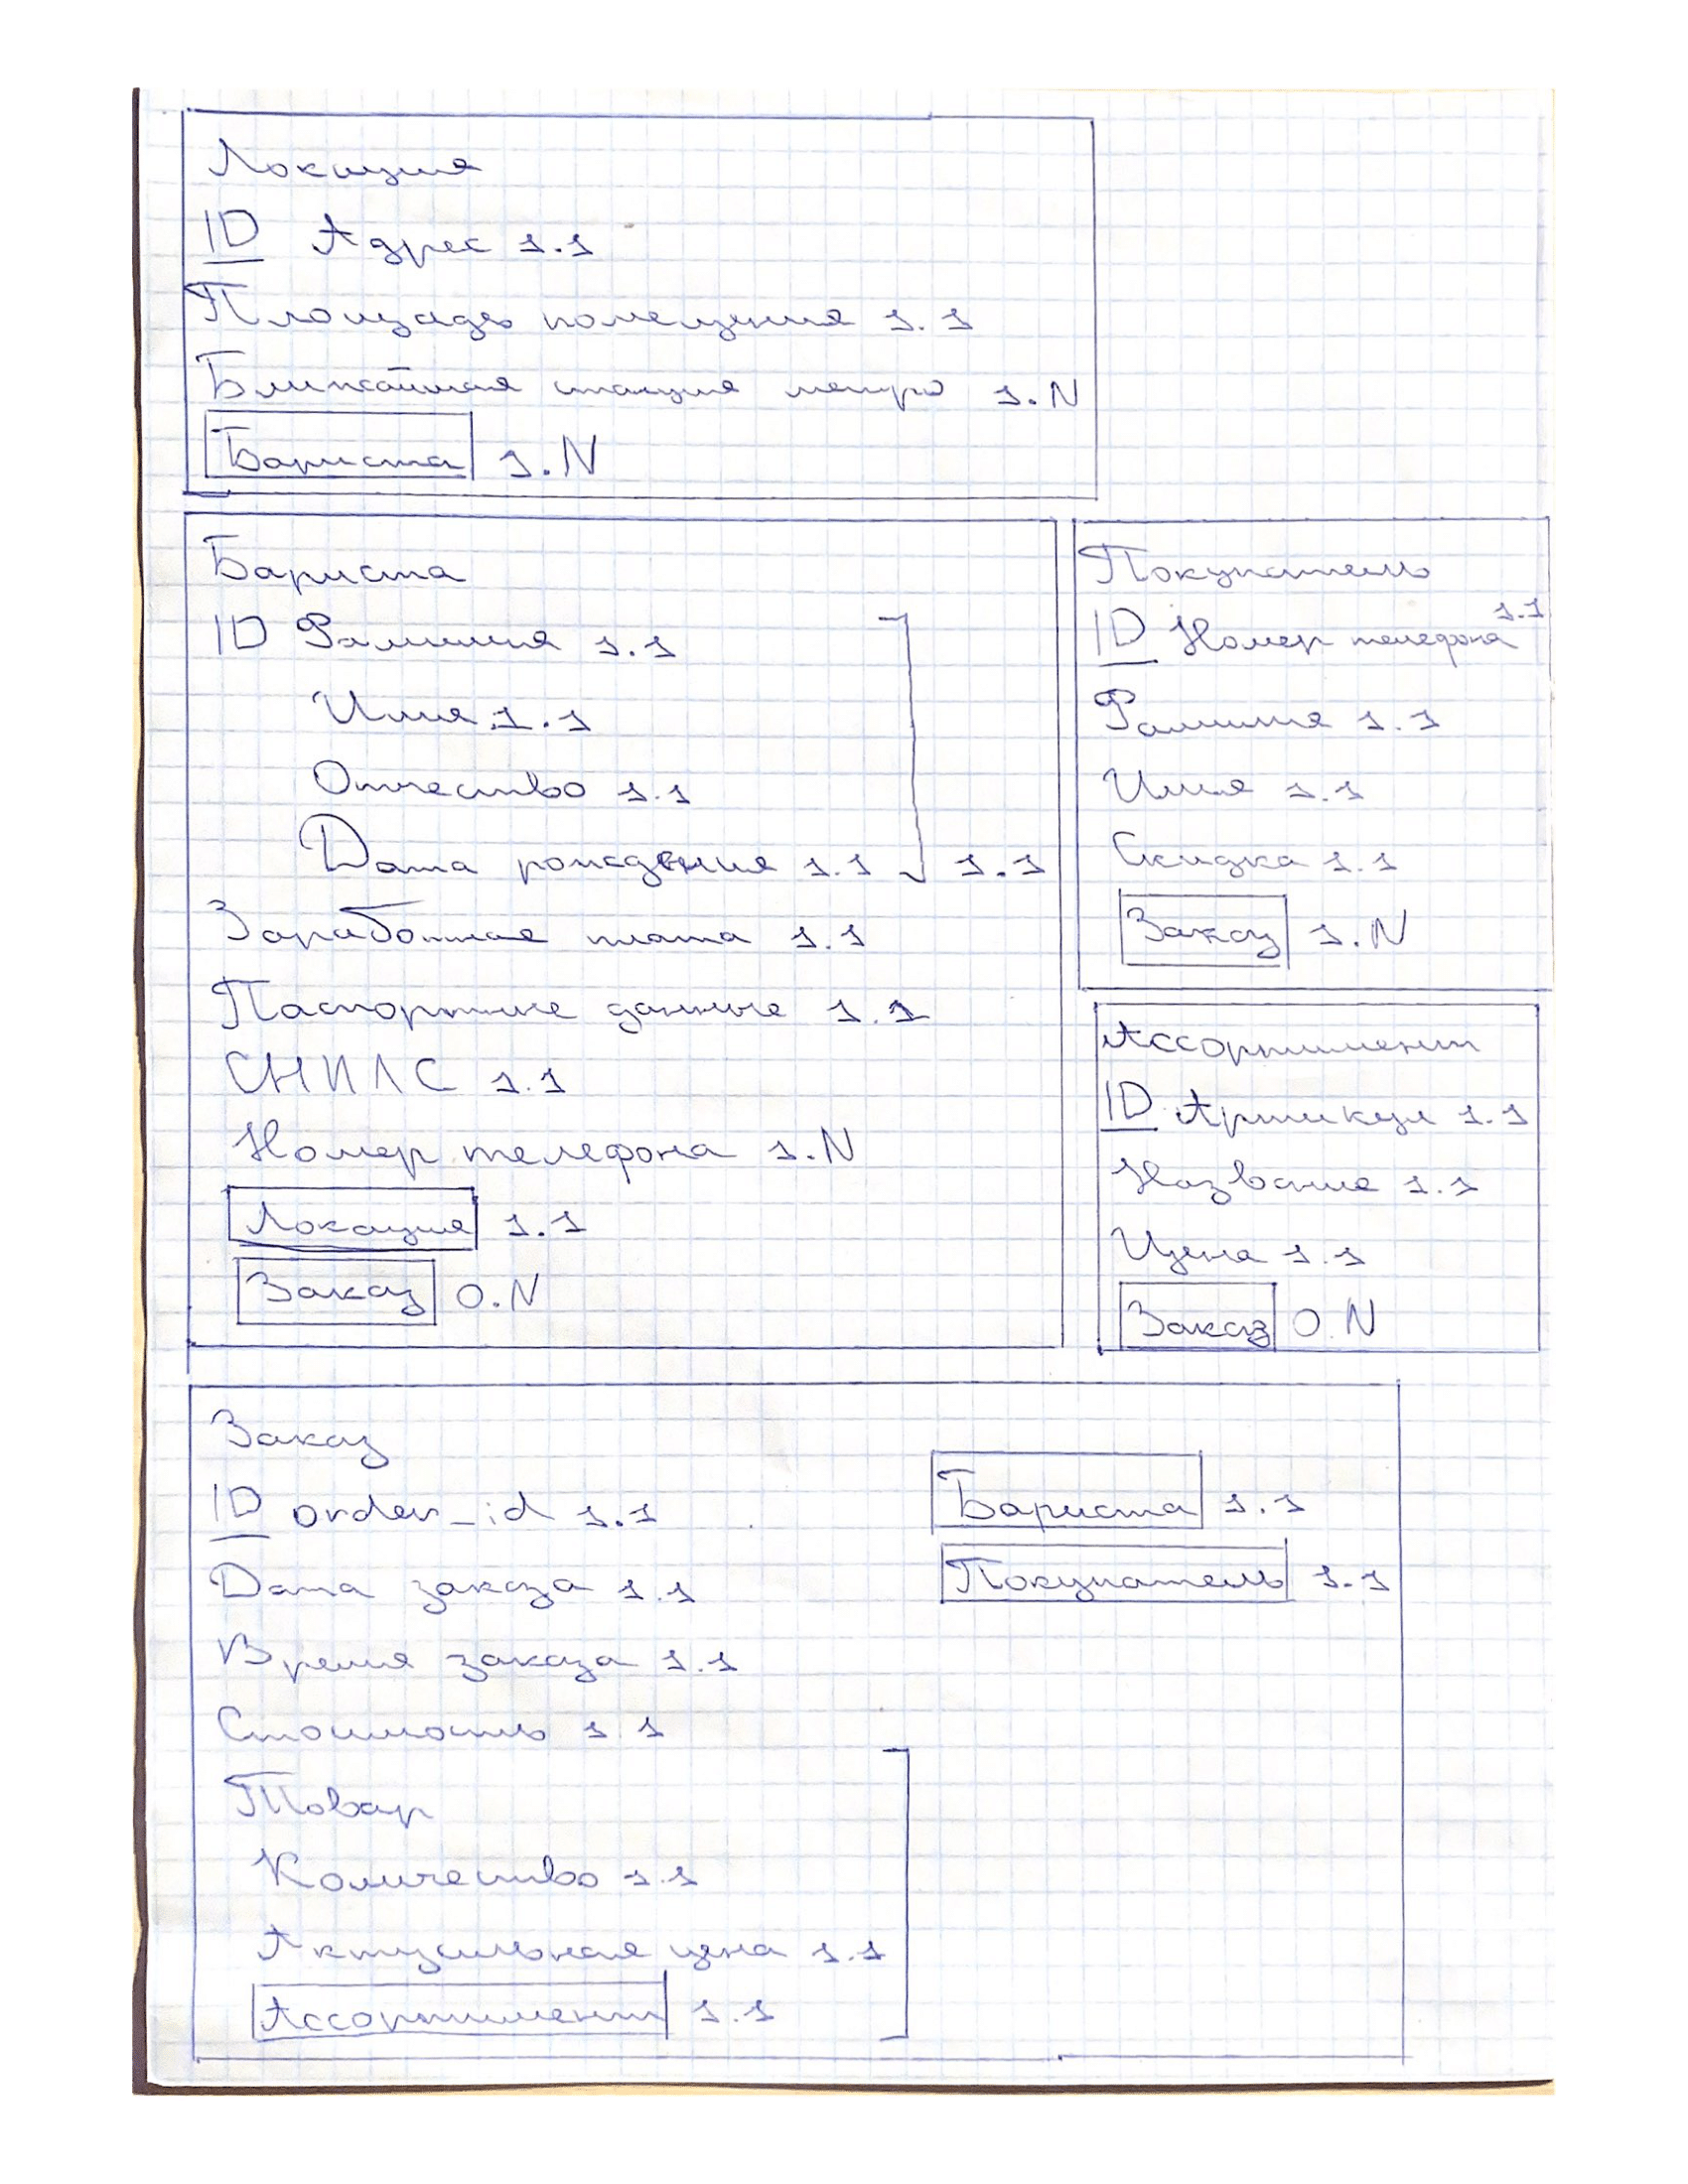 Локация
ID Адрес 1.1
Площадь помещения 1.1
Ближайшая станция метро 1.N
Бариста 1.N
Бариста
ID Фамилия 1.1
Имя 1.1
Отчество 1.1
Дата рождения 1.1 1.1
Заработная плата 1.1
Паспортные данные 1.1
СНИЛС 1.1
Номер телефона 1.N
Локация 1.1
Заказ 0.N
Покупатель
ID Номер телефона 1.1
Фамилия 1.1
Имя 1.1
Скидка 1.1
Заказ 1.N
Ассортимент
ID Артикул 1.1
Название 1.1
Цена 1.1
Заказ 0.N
Заказ
ID order_id 1.1
Дата заказа 1.1
Время заказа 1.1
Стоимость 1.1
Товар
Количество 1.1
Актуальная цена 1.1
Ассортимент 1.1
Бариста 1.1
Покупатель 1.1